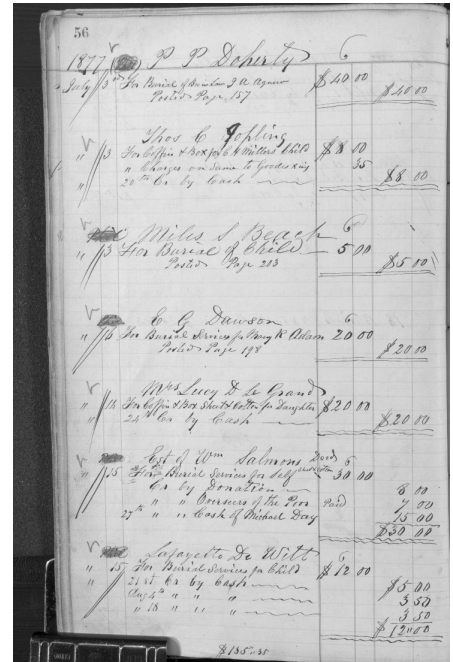 56
1877 P P Doherty 6
July 3rd For Burial of J A Agnew $40 00 $40 00
Posted Page 157
Thos C Jopling
" 3 For Coffin & Box for C H Millers Child $8 00
" Charges on Same to 35
20th Cr by Cash $8 00
Miles S Beach 6
" 13 For Burial of Child 5 00
Posted Page 203 $5 00
E G Dawson 6
" 6 For Burial Services for Mary R Adam 20 00
Posted Page 198 $20 00
Mrs Lucy D Le Grand
" 18 For Coffin & Box Sheet & Cotton for Daughter $20 00
24th Cr by Cash $20 00
Est of Wm Salmons Decd 6
" 15 For Burial Services for Self 30 00
Cr by Donation 8 00
" " Overseers of the Poor Paid 7 00
27th " " Cash of Michael Day 15 00
$30 00
Lafayette De Witt 6
" 15 For Burial Services for Child $12 00
" 21st Cr by Cash $5 00
Aug 4th " " " 3 50
" 18 " " " 3 50
$12 00
$135.35